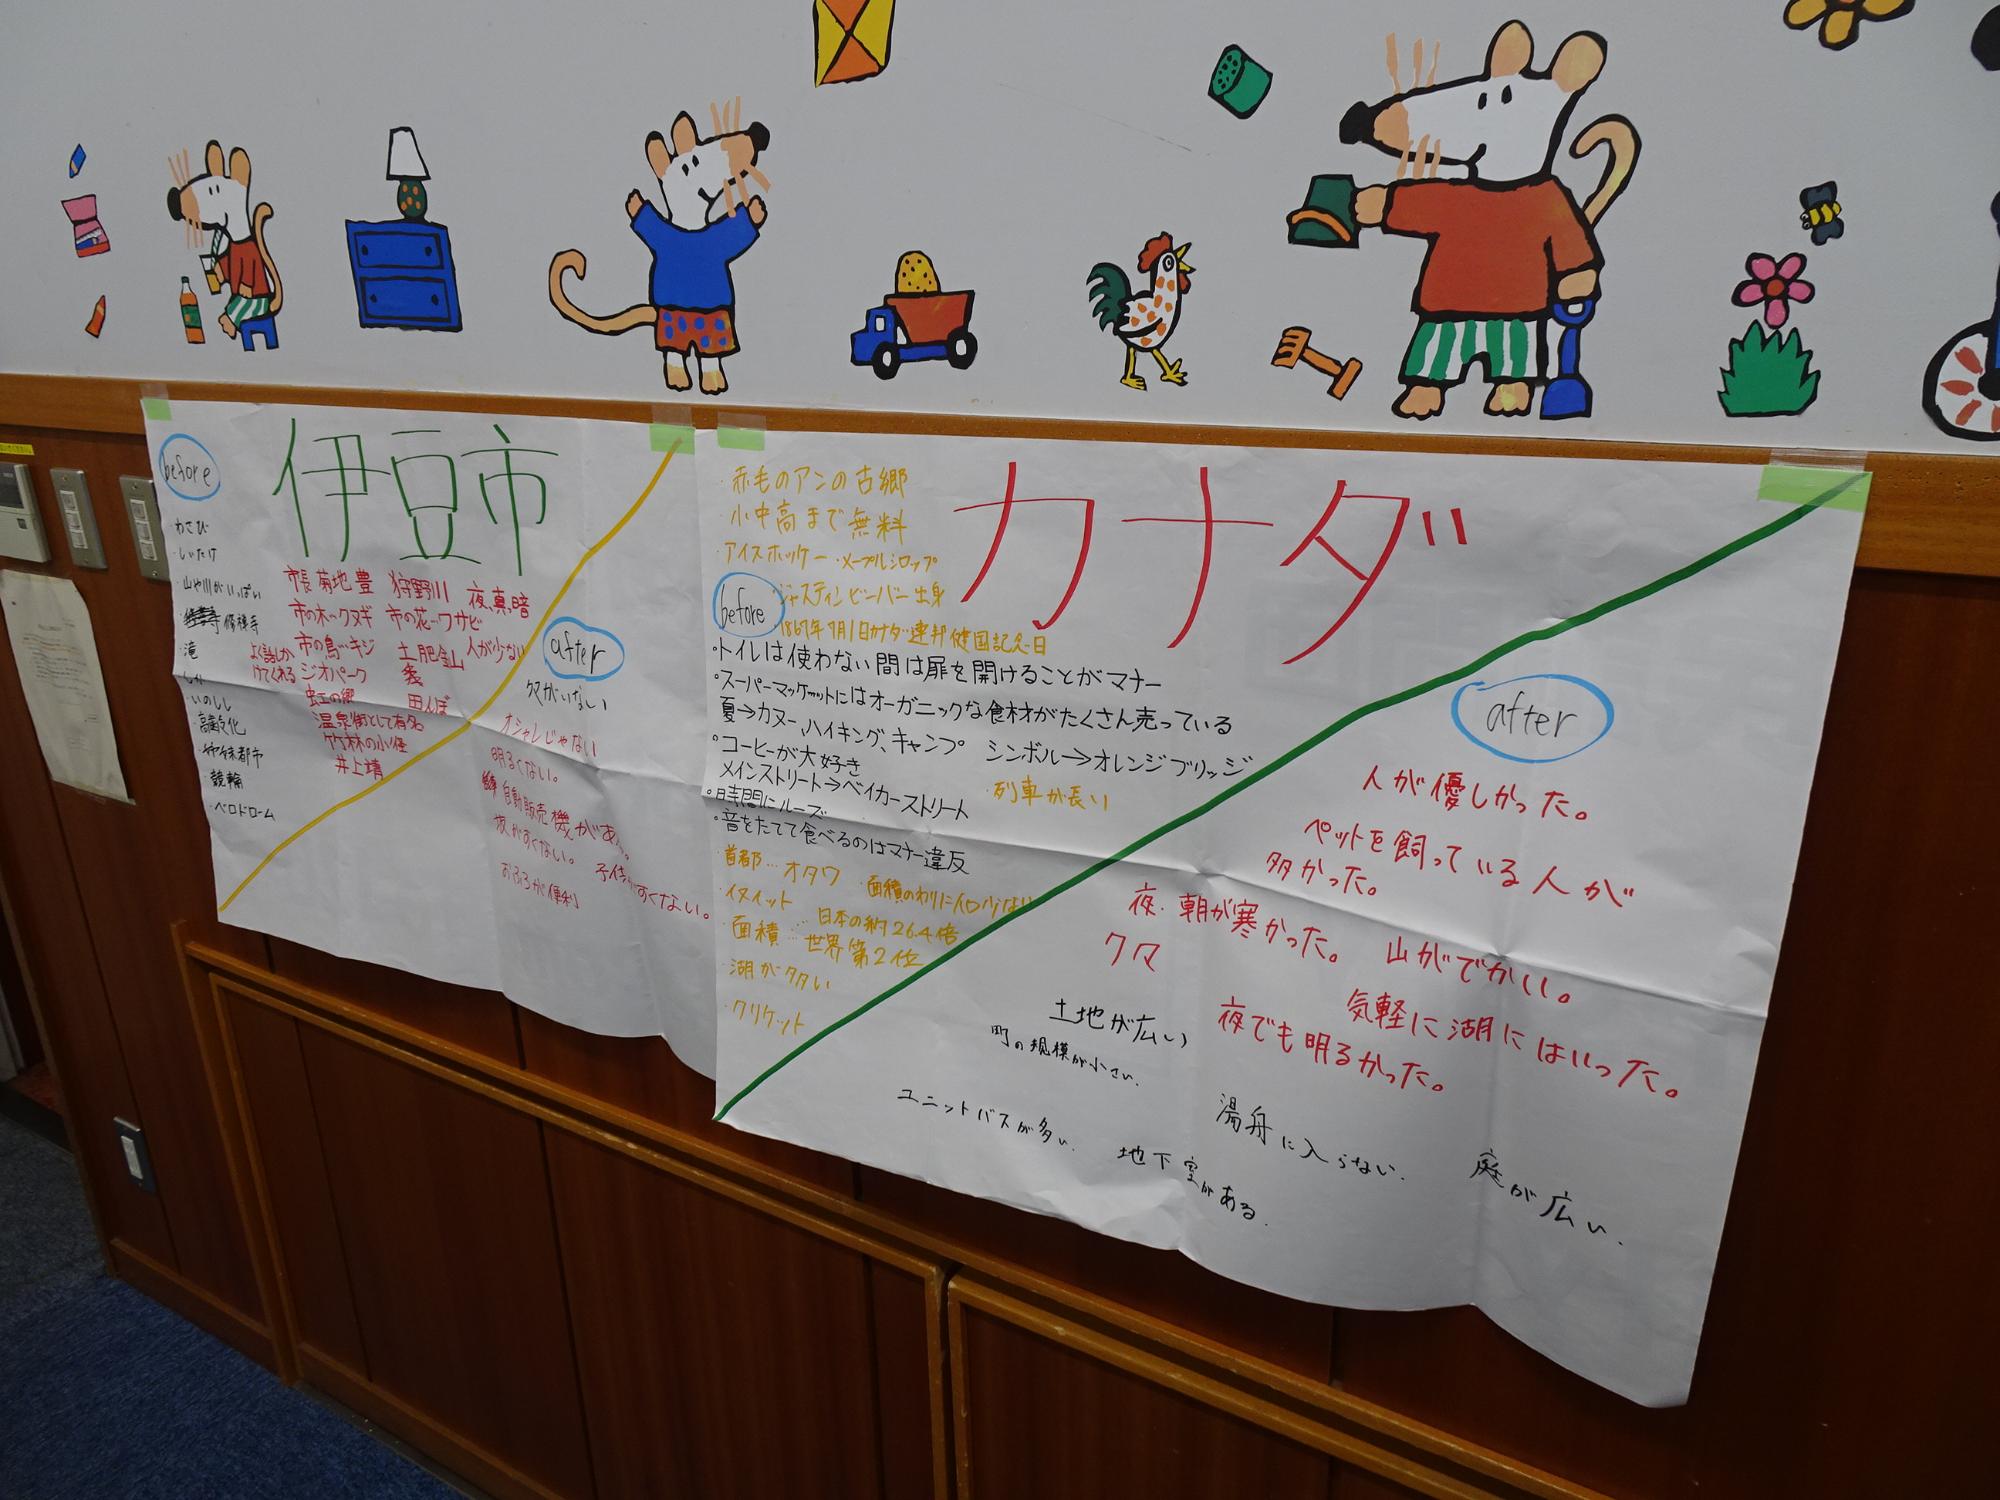 before
伊豆市
・わさび
・しいたけ
・山や川がいっぱい
修禅寺
・滝
・いのしし
・高齢化
・姉妹都市
・競輪
・ベロドローム
市長 菊地 豊
市の木…クヌギ
市の鳥…キジ
よく話しか
けてくれる
ジオパーク
虹の郷
温泉街として有名
竹林の小径
井上靖
狩野川
市の花…ワサビ
土肥金山
田んぼ
夜、真暗
人が少ない
after
クマがいない
オシャレじゃない
明るくない。
自動販売機がある。
坂がすくない。
子供がすくない。
おふろが便利
カナダ
・赤毛のアンの古郷
・小中高まで無料
・アイスホッケー ・メープルシロップ
before
・ジャスティンビーバー出身
・1867年7月1日カナダ連邦健国記念日
・トイレは使わない間は扉を開けることがマナー
・スーパーマッケットにはオーガニックな食材がたくさん売っている
夏→カヌー、ハイキング、キャンプ シンボル→オレンジブリッジ
・コーヒーが大好き
メインストリート→ベイカーストリート
・列車が長い
・時間にルーズ
・音をたてて食べるのはマナー違反
・首都…オタワ ・面積のわりに人口少ない
・イヌイット
・面積…日本の約26.4倍
世界第2位
・湖が多い
・クリケット
after
人が優しかった。
ペットを飼っている人が
多かった。
夜・朝が寒かった。
山がでかい。
クマ
気軽に湖にはいった。
夜でも明るかった。
土地が広い
町の規模が小さい.
ユニットバスが多い.
湯舟に入らない.
地下室がある.
庭が広い.